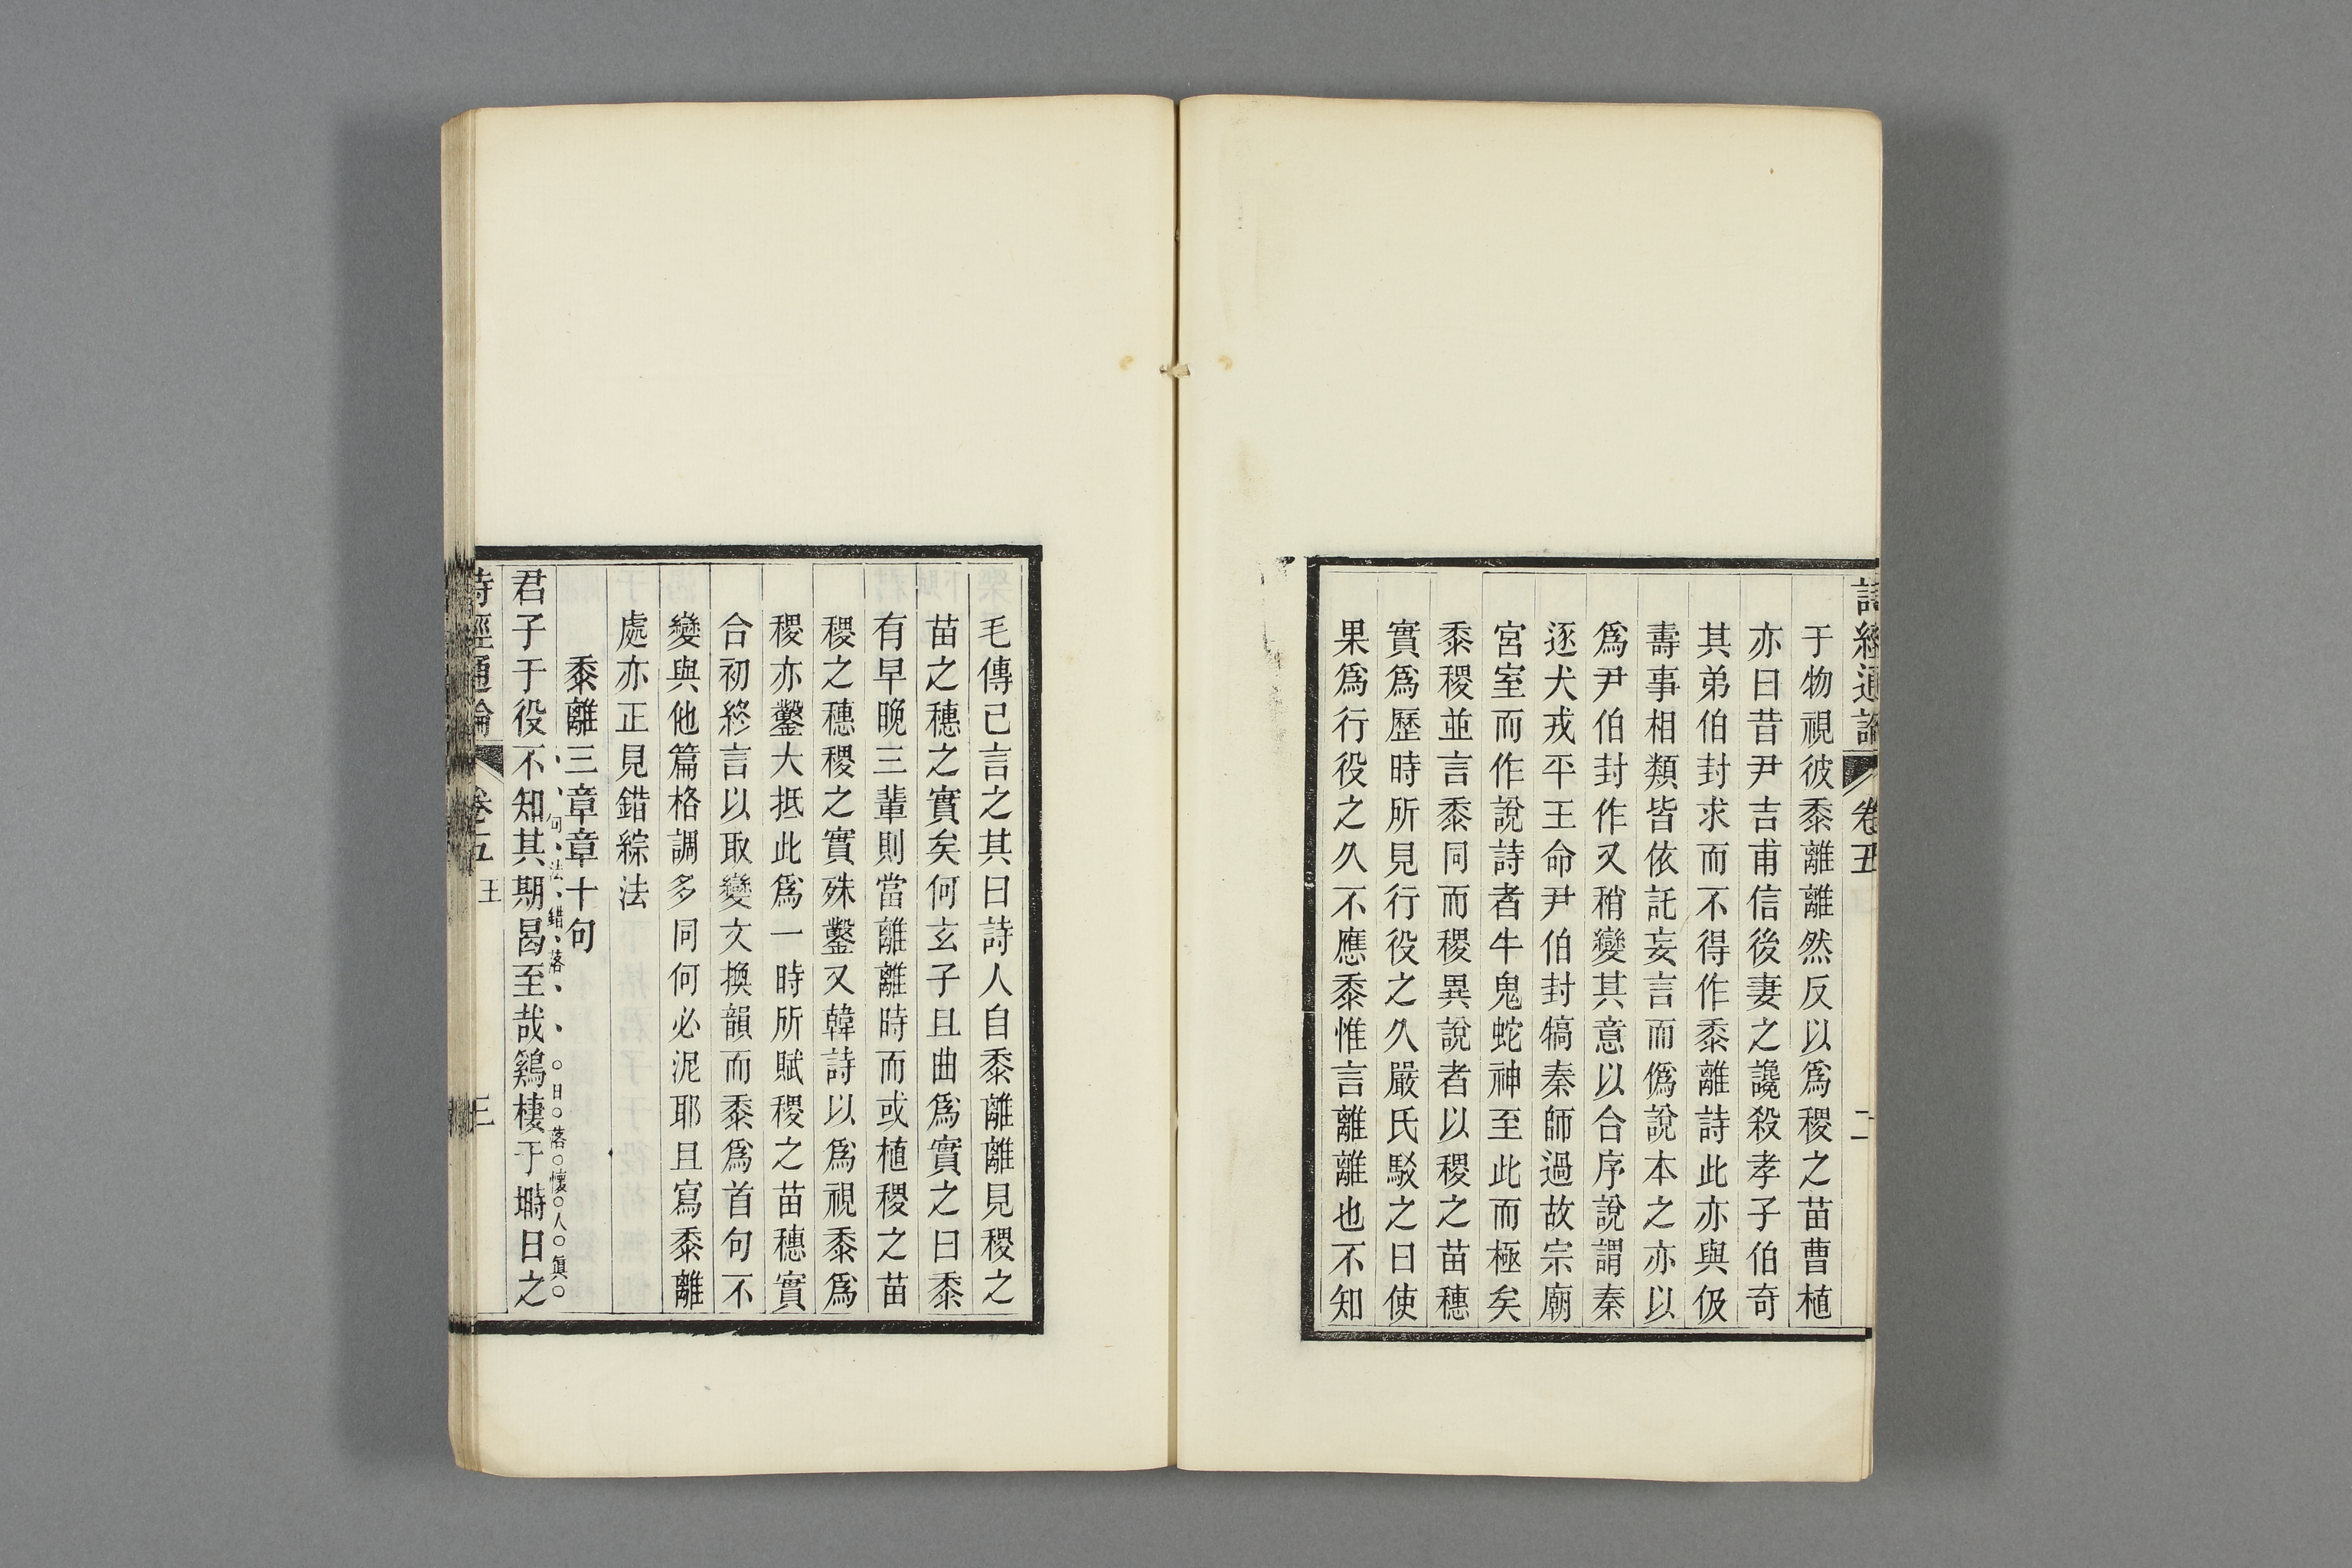 詩經通論 卷五 二
于物視彼黍離離然反以爲稷之苗曹植
亦曰昔尹吉甫信後妻之讒殺孝子伯奇
其弟伯封求而不得作黍離詩此亦與伋
壽事相類皆依託妄言而僞說本之亦以
爲尹伯封作又稍變其意以合序說謂秦
逐犬戎平王命尹伯封犒秦師過故宗廟
宮室而作說詩者牛鬼蛇神至此而極矣
黍稷並言黍同而稷異說者以稷之苗穗
實爲歷時所見行役之久嚴氏駁之曰使
果爲行役之久不應黍惟言離離也不知
毛傳已言之其曰詩人自黍離離見稷之
苗之穗之實矣何玄子且曲爲實之曰黍
有早晚三輩則當離離時而或植稷之苗
稷之穗稷之實殊鑿又韓詩以爲視黍爲
稷亦鑿大抵此爲一時所賦稷之苗穗實
合初終言以取變文換韻而黍爲首句不
變與他篇格調多同何必泥耶且寫黍離
處亦正見錯綜法
黍離三章章十句
句法錯落 日落懷人眞
君子于役不知其期曷至哉鷄棲于塒日之
詩經通論 卷五 王 三